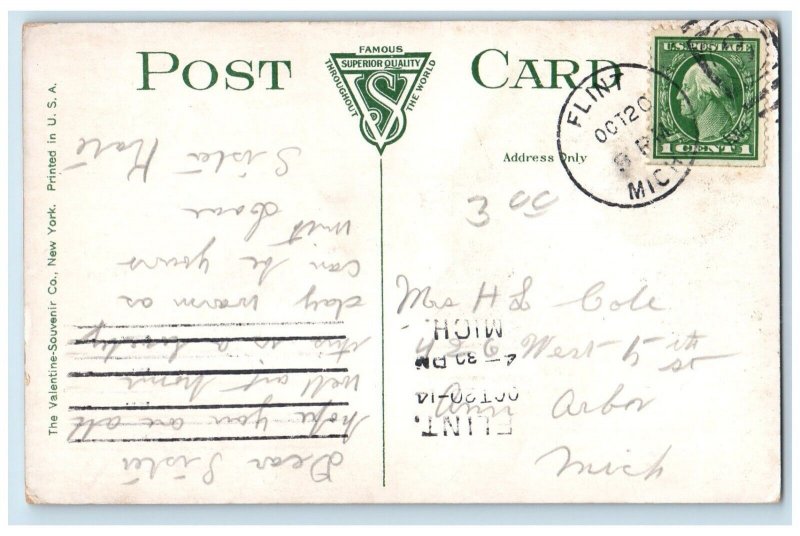 POST CARD
FAMOUS
SUPERIOR QUALITY
THROUGHOUT THE WORLD
VS
Address Only
U.S. POSTAGE
1 CENT 1
FLINT
OCT 20
8 PM
MICH
The Valentine-Souvenir Co., New York. Printed in U. S. A.
3 00
Mrs H L Cole
West 5th st
Ann Arbor
Mich
FLINT,
OCT 20-14
4-30 PM
MICH.
Dear Sister
hope you are all
well at home
this is a lovely
day warm as
can be yours
with Love
Sister Kate